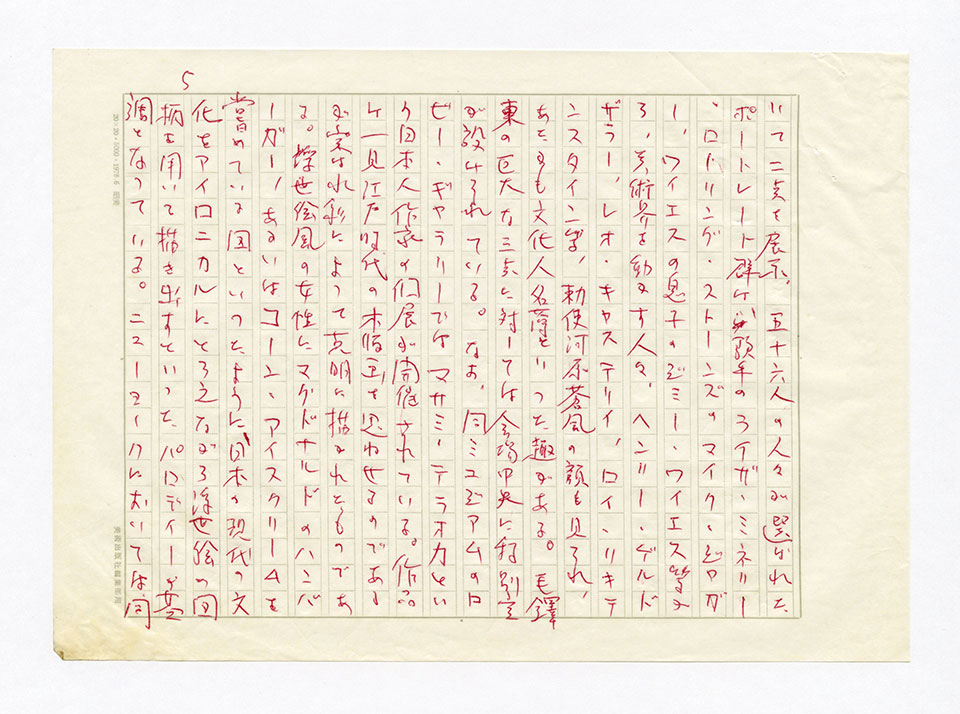 5
いて二点を展示、五十六人の人々が選ばれた
ポートレート群は歌手のライザ・ミネリー
、ローリング・ストーンズのマイク・ジャガ
ー、ワイエスの息子のジミー・ワイエス等か
ら、美術界を動かす人々、ヘンリー・ゲルド
ザラー、レオ・キャステリイ、ロイ・リキテ
ンスタイン等、勅使河原蒼風の顔も見られ、
あたかも文化人名簿といった趣がある。毛鐸
東の巨大な三点に対しては会場中央に特別室
が設けられている。なお、同ミュゼアムのロ
ビー・ギャラリーではマサミ・テラオカとい
う日本人作家の個展が開催されている。作品
は一見江戸時代の木版画を思わせるのである
が実は水彩によって克明に描かれたものであ
る。浮世絵風の女性にマグドナルドのハンバ
ーガー、あるいはコーン、アイスクリームを
嘗めている図といったように、日本の現代の文
化をアイロニカルにとらえながら浮世絵の図
柄を用いて描き出すといったパロディーが基
調となっている。ニューヨークにおいては同
20×20・5000・1976.6
美術出版社編集部用